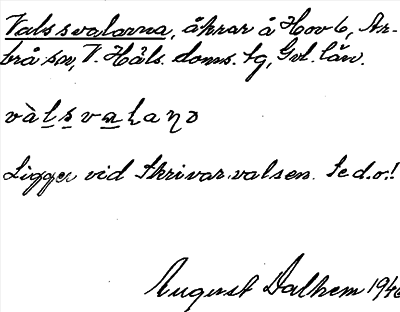 Valssvalarna, åkrar å Hov 6, Ar-
brå sn, V. Häls. doms. tg, Gvl. län.
vàlsvaḷaɳɔ
Ligger vid Skrivarvalsen. Se d.o.!
August Dalhem 1946